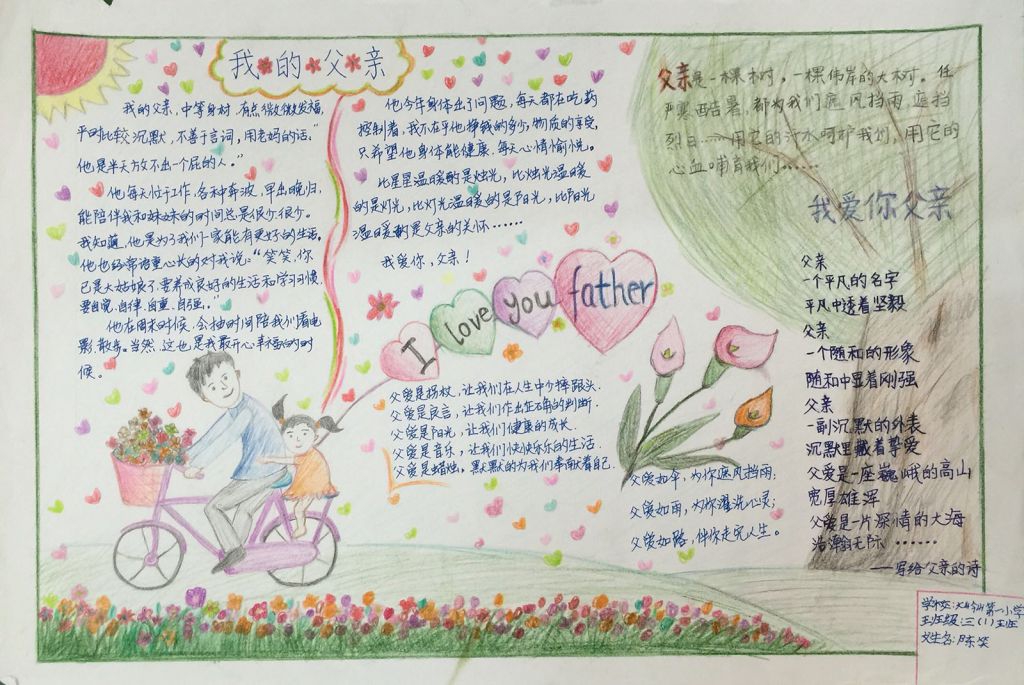 我的父亲
我的父亲,中等身材,有点微微发福,
平时比较沉默,不善于言词,用老妈的话:“
他是半天放不出一个屁的人。”
他每天忙于工作,各种奔波,早出晚归,
能陪伴我和妹妹的时间总是很少很少。
我知道,他是为了我们一家能有更好的生活。
他也经常语重心长的对我说:“笑笑,你
已是大姑娘了,要养成良好的生活和学习习惯,
要自觉,自律,自重,自强。”
他在周末时候,会抽时间陪我们看电
影,散步。当然,这也是我最开心幸福的时
候。
他今年身体出了问题,每天都在吃药
控制着,我不在乎他挣钱的多少,物质的享受,
只希望他身体能健康,每天心情愉悦。
比星星温暖的是烛光,比烛光温暖
的是灯光,比灯光温暖的是阳光,比阳光
温暖的是父亲的关怀……
我爱你,父亲!
I love you father
父爱是拐杖,让我们在人生中少摔跟头.
父爱是良言,让我们作出正确的判断.
父爱是阳光,让我们健康的成长.
父爱是音乐,让我们快快乐乐的生活.
父爱是蜡烛,默默的为我们奉献着自己.
父爱如伞,为你遮风挡雨;
父爱如雨,为你濯洗心灵;
父爱如路,伴你走完人生。
父亲是一棵树,一棵伟岸的大树。任
严寒酷暑,都为我们遮风挡雨,遮挡
烈日……用它的汁水呵护我们,用它的
心血哺育我们……
我爱你父亲
父亲
一个平凡的名字
平凡中透着坚毅
父亲
一个随和的形象
随和中显着刚强
父亲
一副沉默的外表
沉默里藏着挚爱
父爱是一座巍峨的高山
宽厚雄浑
父爱是一片深情的大海
浩瀚无际……
——写给父亲的诗
学校:第一小学
班级:三(1)班
姓名:陈笑